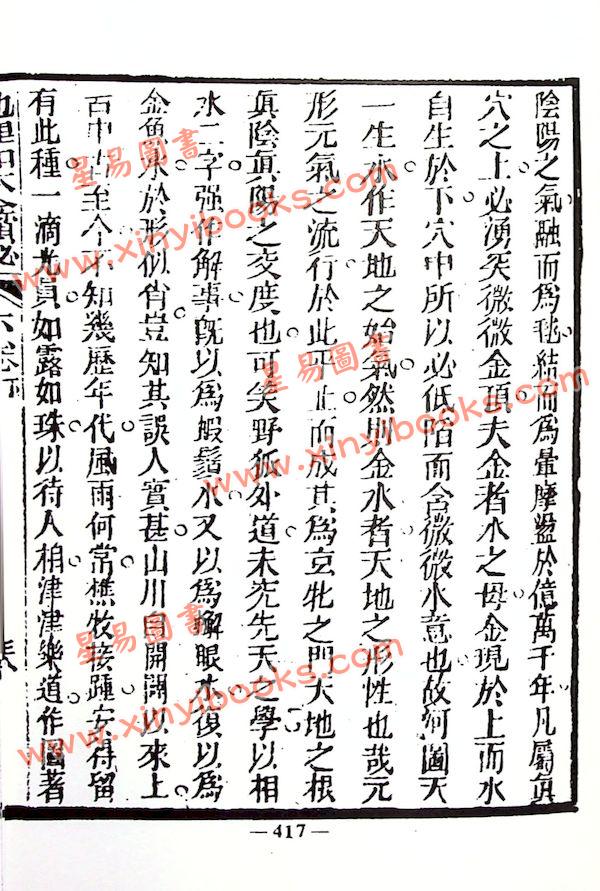 陰陽之氣融而為毬結而為暈摩盪於億萬千年凡屬真
穴之上必湧突微微金頂夫金者水之母金現於上而水
自生於下穴中所以必低陷而含微微水意也故河圖天
一生水作天地之始氣然則金水者天地之形性也哉元
形元氣之流行於此乎止而成其為玄牝之門天地之根
真陰真陽之交度也可矣野狐外道未究先天之學以相
水二字强作解事旣以為蝦鬚水又以為蠏眼水復以為
金魚水於形似肯豈知其誤人實甚山川自開闢以來上
百中古至今不知幾歷年代風雨何常樵牧接踵安得留
有此種一滴光真如露如珠以待人相津津樂道作圖著
六卷下
星易圖書
www.xinyibooks.com
星易圖書
www.xinyibooks.com
星易圖書
www.xinyibooks.com
— 417 —